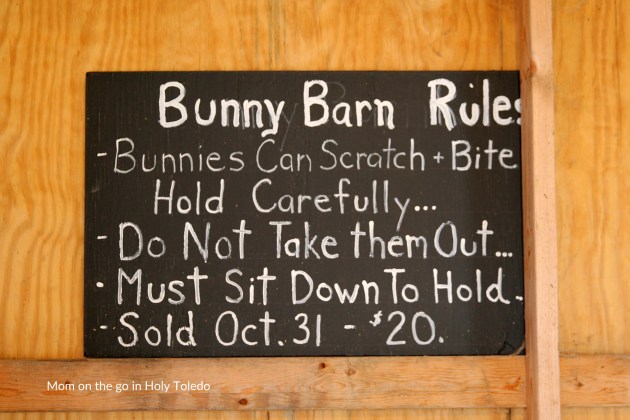 Bunny Barn Rules
- Bunnies Can Scratch + Bite
Hold Carefully...
- Do Not Take them Out...
- Must Sit Down To Hold.
- Sold Oct. 31 - $20.
Mom on the go in Holy Toledo